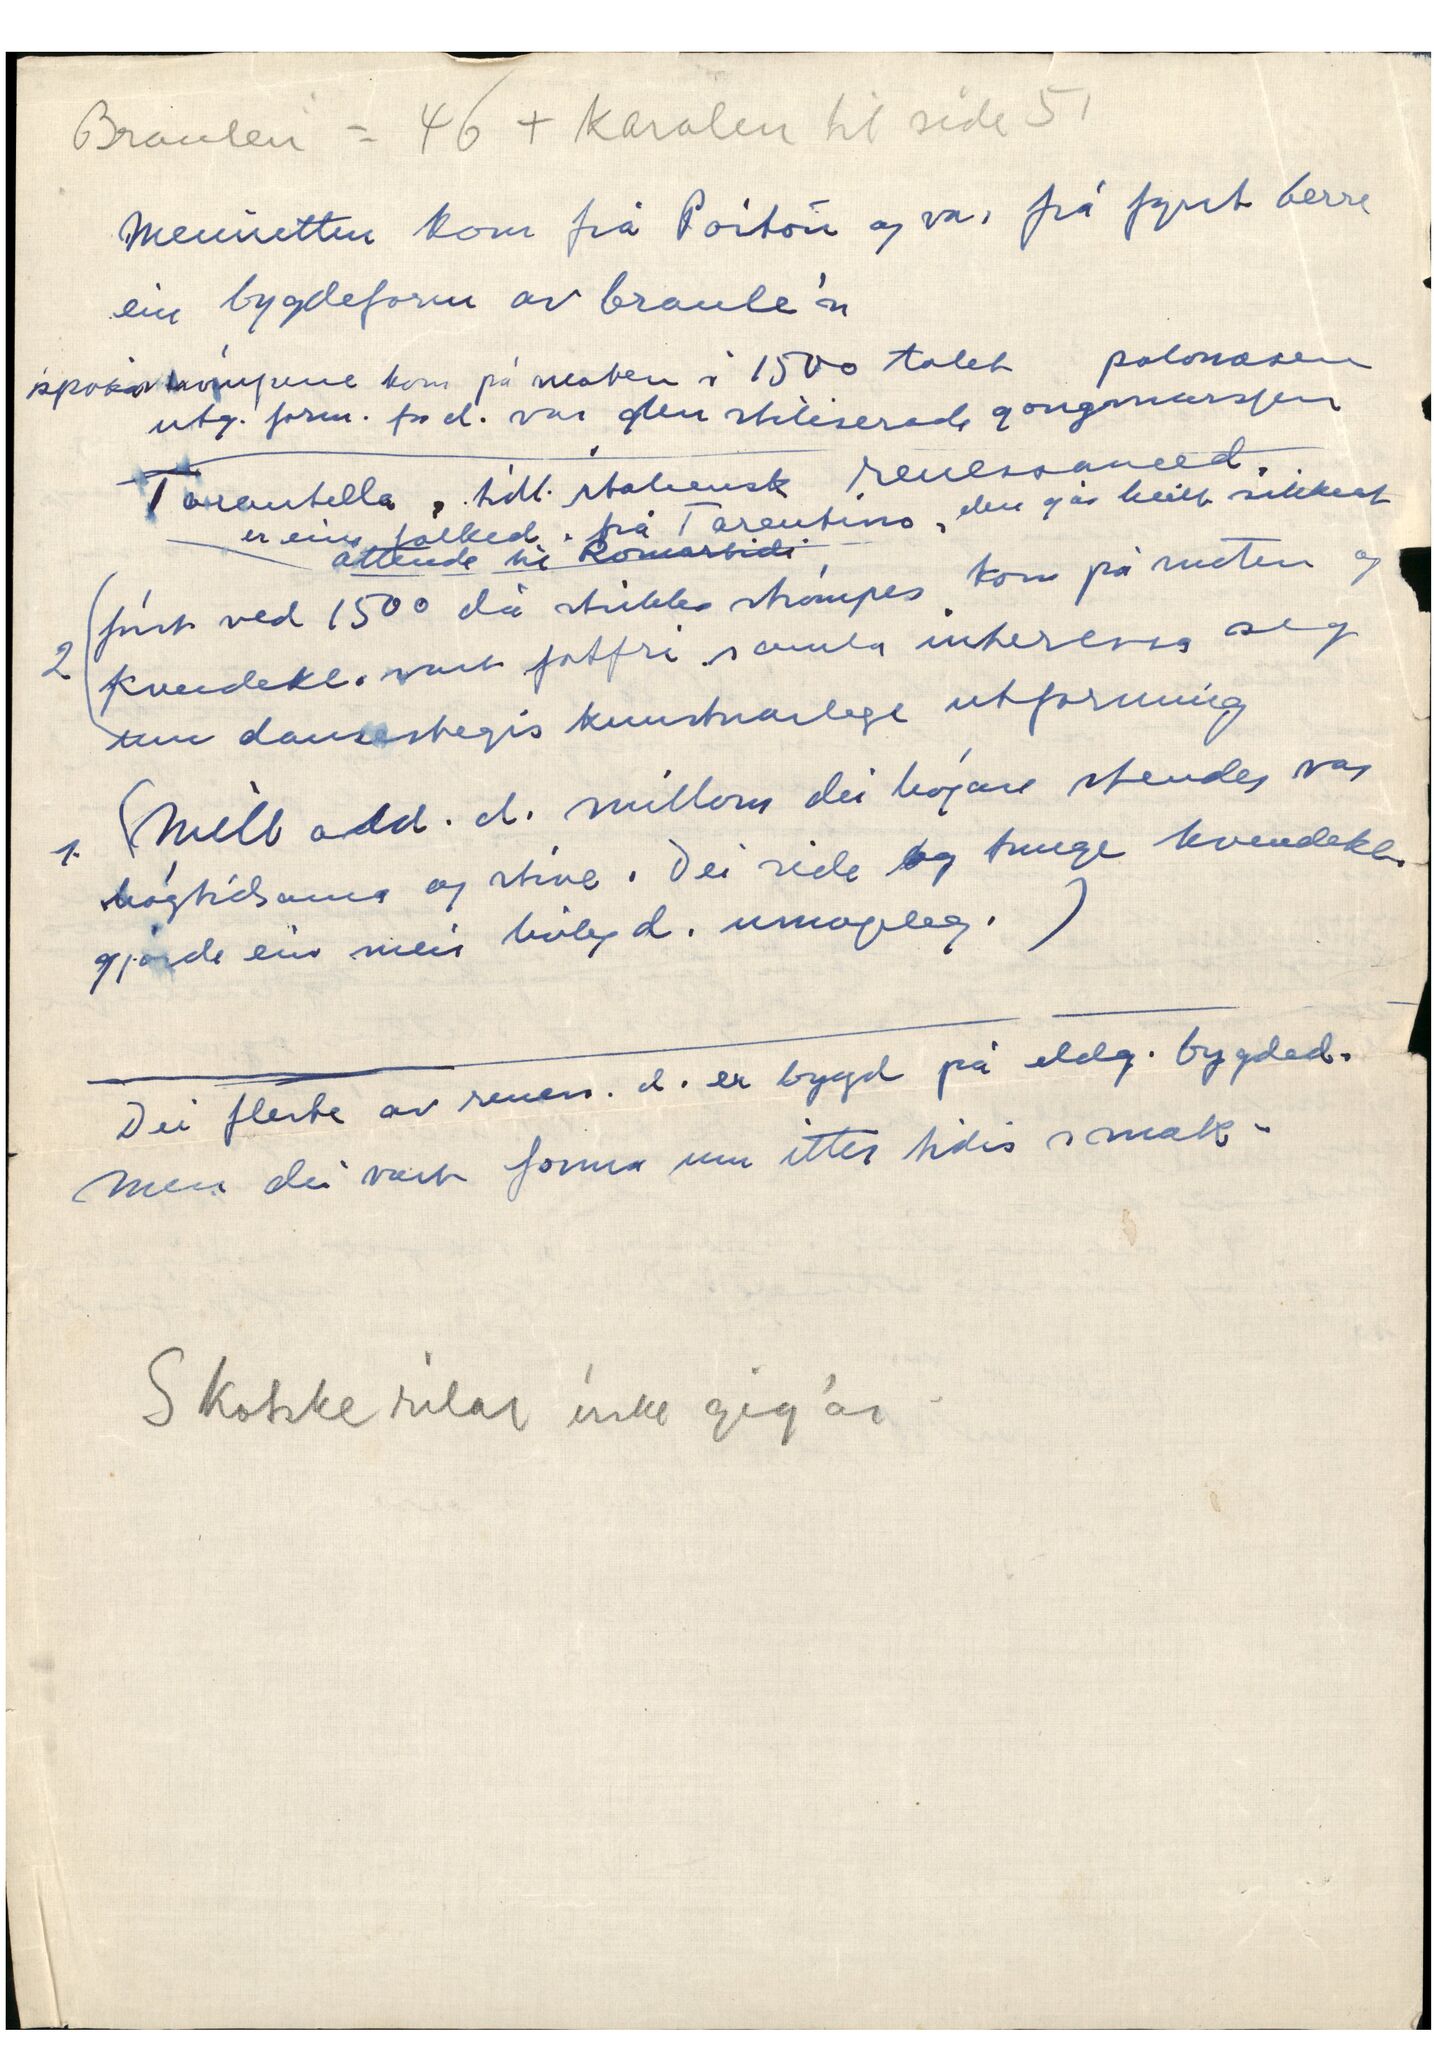 Braulen = 46 + Karolen til side 51
Menuetten kom frå Poitou og var frå fyrst berre
ein bygdeform av braule'n
kom på moten i 1500 talet polonesen
utg. form. for d. var den stiliserade gongmarsjen
Tarantella, tidl. italiensk renessansed.
er ein folked. frå Tarentino, den går heilt sikkert
attende til Romartidi
2 (fórst ved 1500 då strikka strómper kom på moten og
kvendekl. vart fotfri samla interessa seg
um dansestegis kunstnarlege utforming
1. (Mell ald. d. millom dei hógare stender var
hógtidsama og stive. Dei side og tunge kvendekl.
gjorde ein meir livleg d. umogleg. )
Dei fleste av renes. d. er bygd på eldg. bygded.
men dei vart forma um etter tidis smak -
Skotske rilar irske gig'ar -